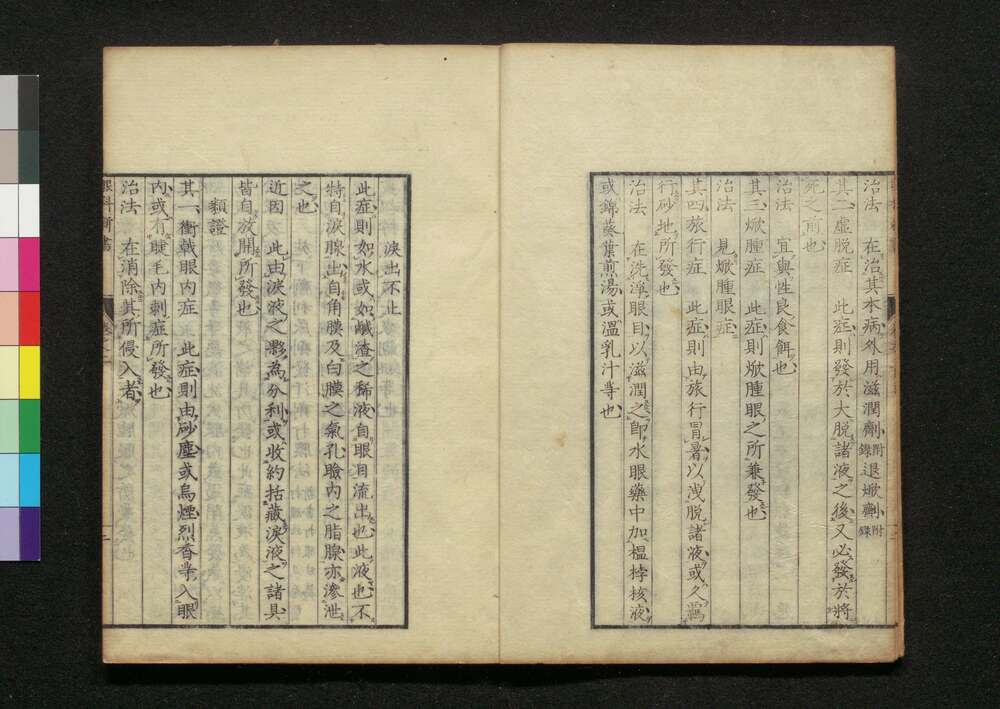 治法　在治其本病外用滋潤劑附錄退焮劑附錄
其二虛脫症　此症則發於大脫諸液之後又必發於將
死之前也
治法　宜與性良食餌也
其三焮腫症　此症則焮腫眼之所兼發也
治法　見焮腫眼症
其四旅行症　此症則由旅行冒暑以洩脫諸液或久
行砂地所發也
治法　在洗淨眼目以滋潤之卽水眼藥中加榲桲核液
或錦葵葉煎湯或溫乳汁等也
淚出不止
此症則如水或如鹹渣之稀液自眼洞流出也此液也不
特自淚腺出自角膜及白膜之氣孔瞼內之脂腺亦滲泄
之也
近因　此由淚液之夥為分利或收約括藏淚液之諸具
皆自放開所發也
類證
其一衝戟眼內症　此症則由砂塵或烏煙烈香等入眼
內或有睫毛內刺症所發也
治法　在消除其所侵入者
眼科新書